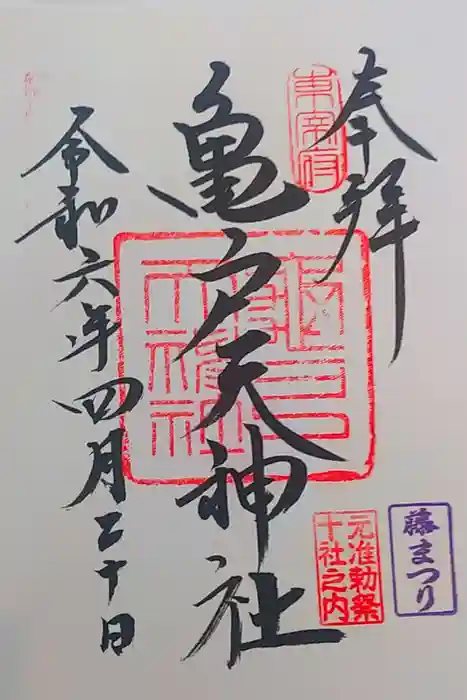 奉拝
東宰府
亀戸天神社
令和六年四月二十日
元准勅祭
十社之内
藤まつり